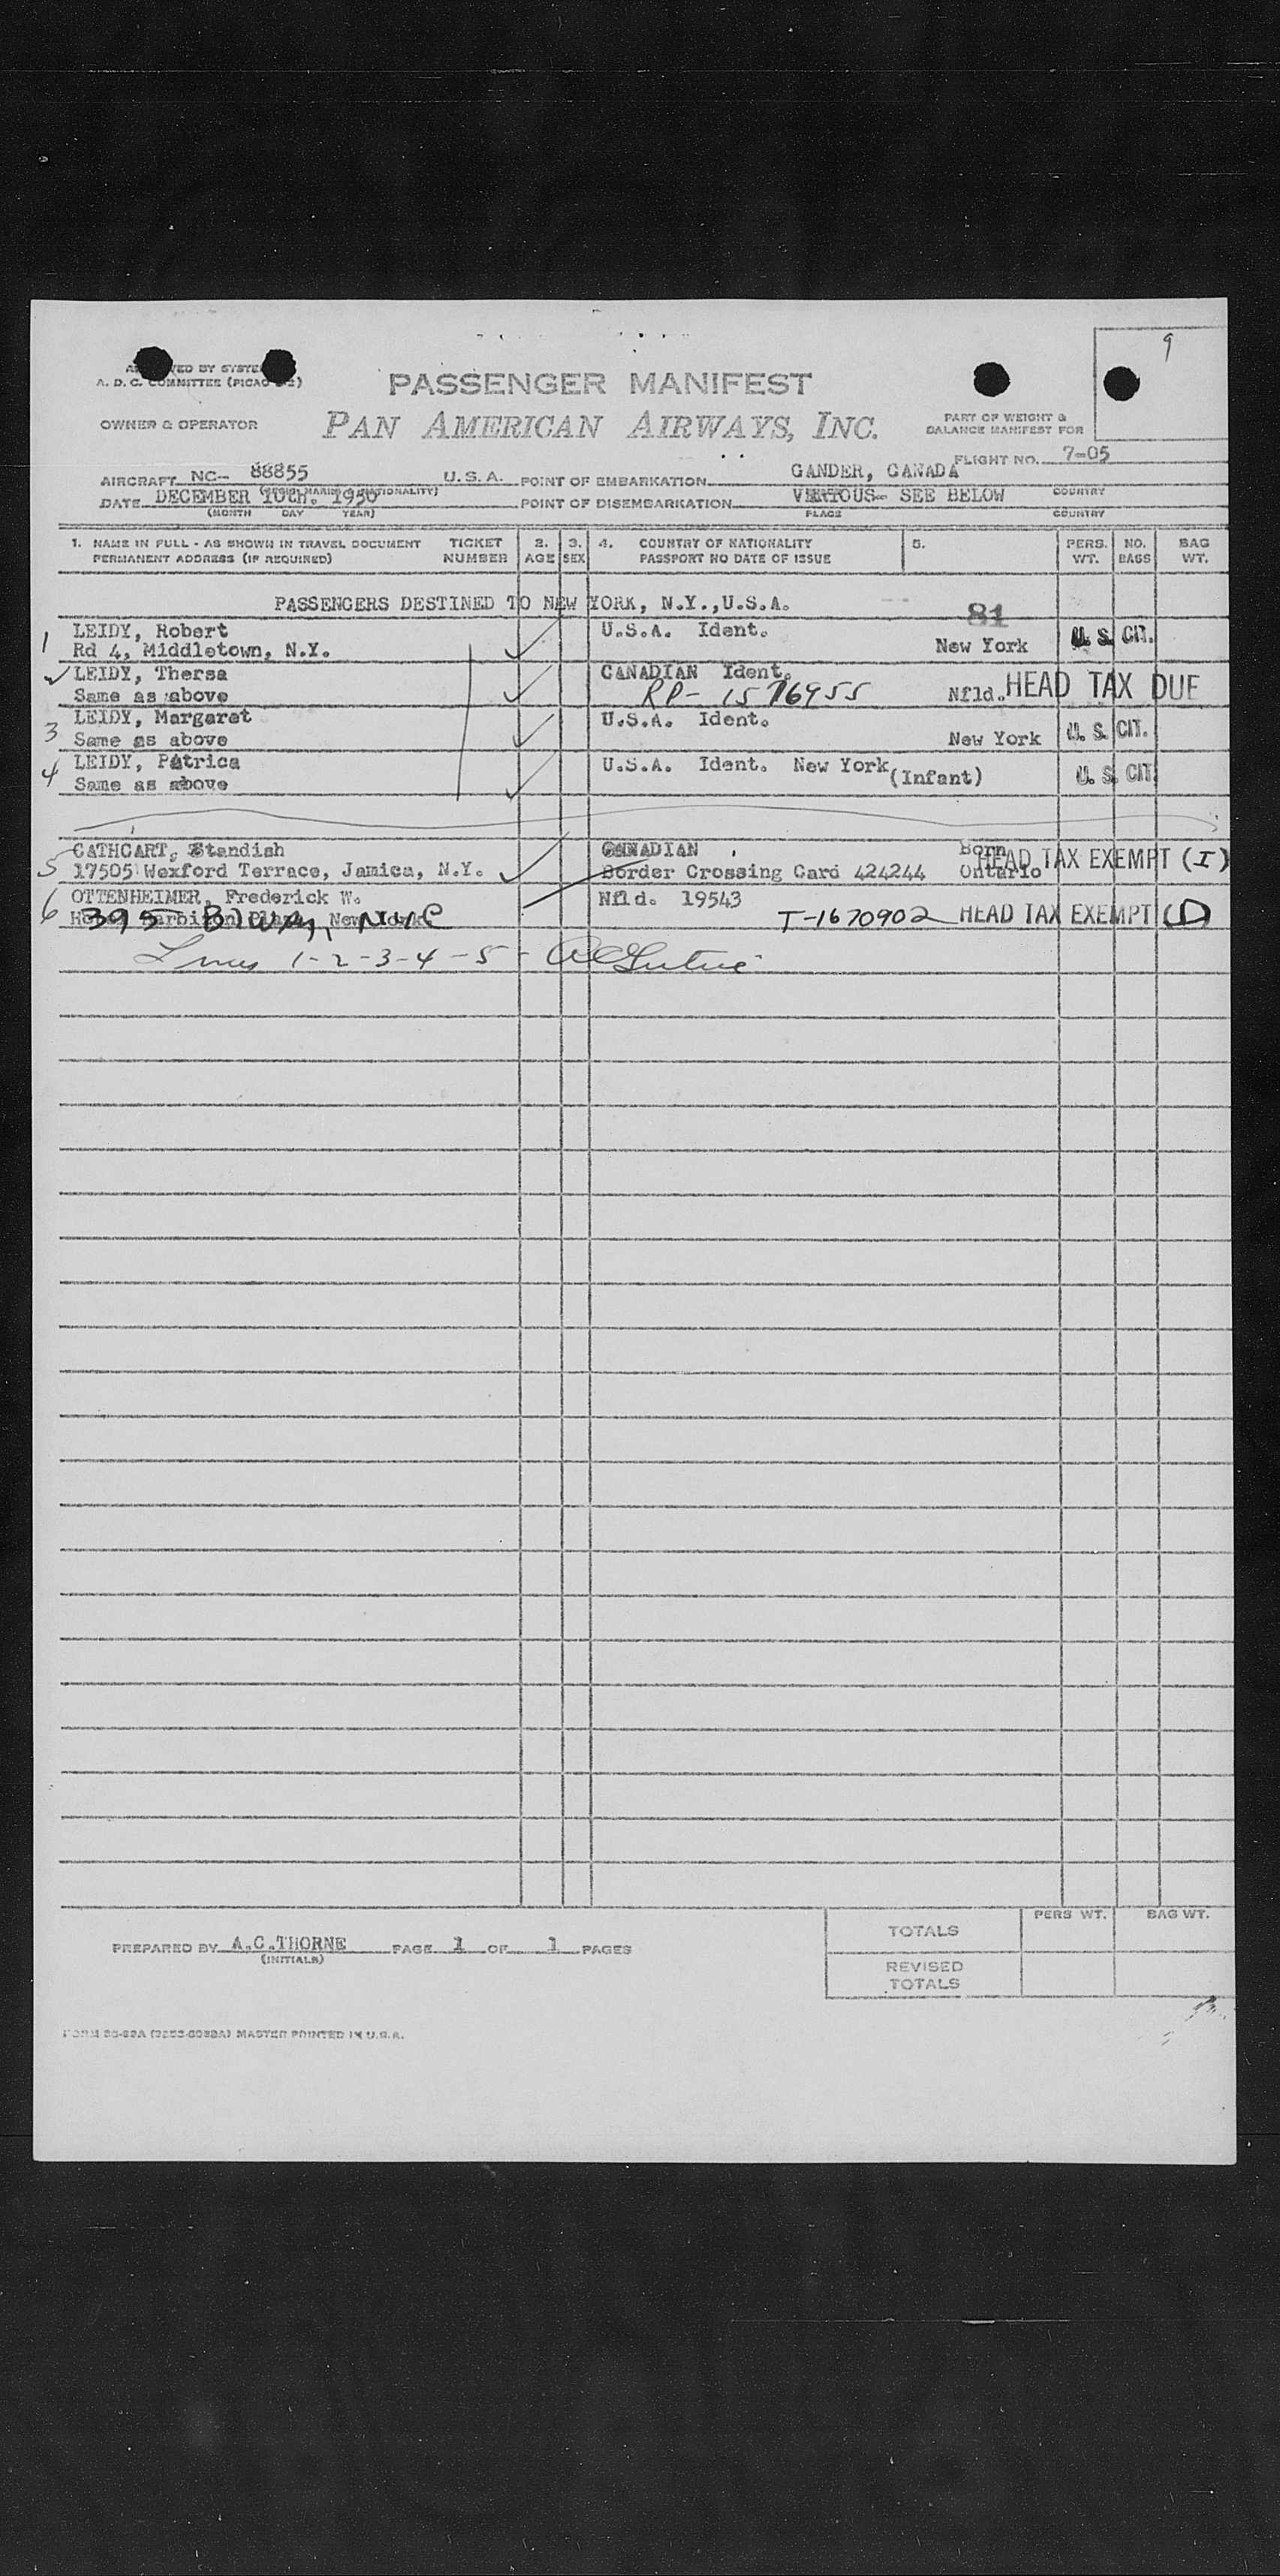 9
A. D. C. COMMITTEE (PICAO
PASSENGER MANIFEST
OWNER & OPERATOR
PAN AMERICAN AIRWAYS, INC.
PART OF WEIGHT &
BALANCE MANIFEST FOR
FLIGHT NO. 7-05
AIRCRAFT NC- 88855 U.S.A. POINT OF EMBARKATION GANDER, CANADA
COUNTRY
DATE DECEMBER 10th. 1950 POINT OF DISEMBARKATION SEE BELOW
(MONTH DAY YEAR) PLACE COUNTRY
1. NAME IN FULL - AS SHOWN IN TRAVEL DOCUMENT TICKET 2. 3. 4. COUNTRY OF NATIONALITY 5. PERS. NO. BAG
PERMANENT ADDRESS (IF REQUIRED) NUMBER AGE SEX PASSPORT NO DATE OF ISSUE WT. BAGS WT.
PASSENGERS DESTINED TO NEW YORK, N.Y.,U.S.A.
81
1 LEIDY, Robert U.S.A. Ident. U. S. CIT.
Rd 4, Middletown, N.Y. New York
LEIDY, Thersa CANADIAN Ident.
Same as above RP- 1576955 Nfld. HEAD TAX DUE
3 LEIDY, Margaret U.S.A. Ident.
Same as above New York U. S. CIT.
4 LEIDY, Patrica U.S.A. Ident. New York (Infant) U. S. CIT.
Same as above
5 CATHCART, Standish CANADIAN Born HEAD TAX EXEMPT (I)
17505 Wexford Terrace, Jamica, N.Y. Border Crossing Card 424244 Ontario
6 OTTENHEIMER, Frederick W. Nfld. 19543
395 Bdway, NYC T-1670902 HEAD TAX EXEMPT (D)
Lines 1-2-3-4-5-
PREPARED BY A.C.THORNE PAGE 1 OF 1 PAGES
(INITIALS)
PERS WT. BAG WT.
TOTALS
REVISED
TOTALS
MASTER PRINTED IN U.S.A.